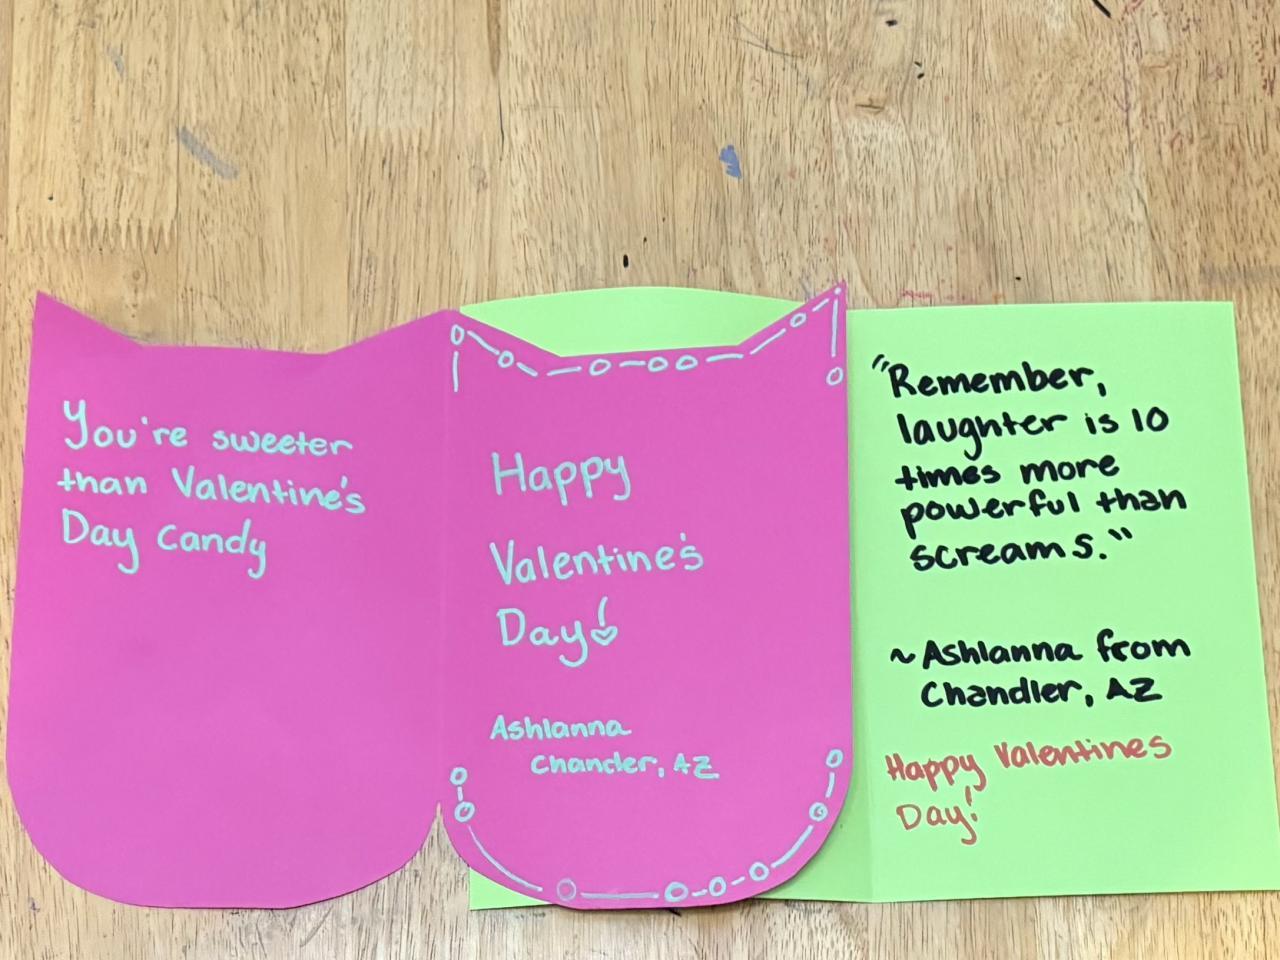 You're sweeter
than Valentine's
Day candy
Happy
Valentine's
Day!
Ashlanna
Chandler, AZ
"Remember,
laughter is 10
times more
powerful than
screams."
~Ashlanna from
Chandler, AZ
Happy Valentines
Day!